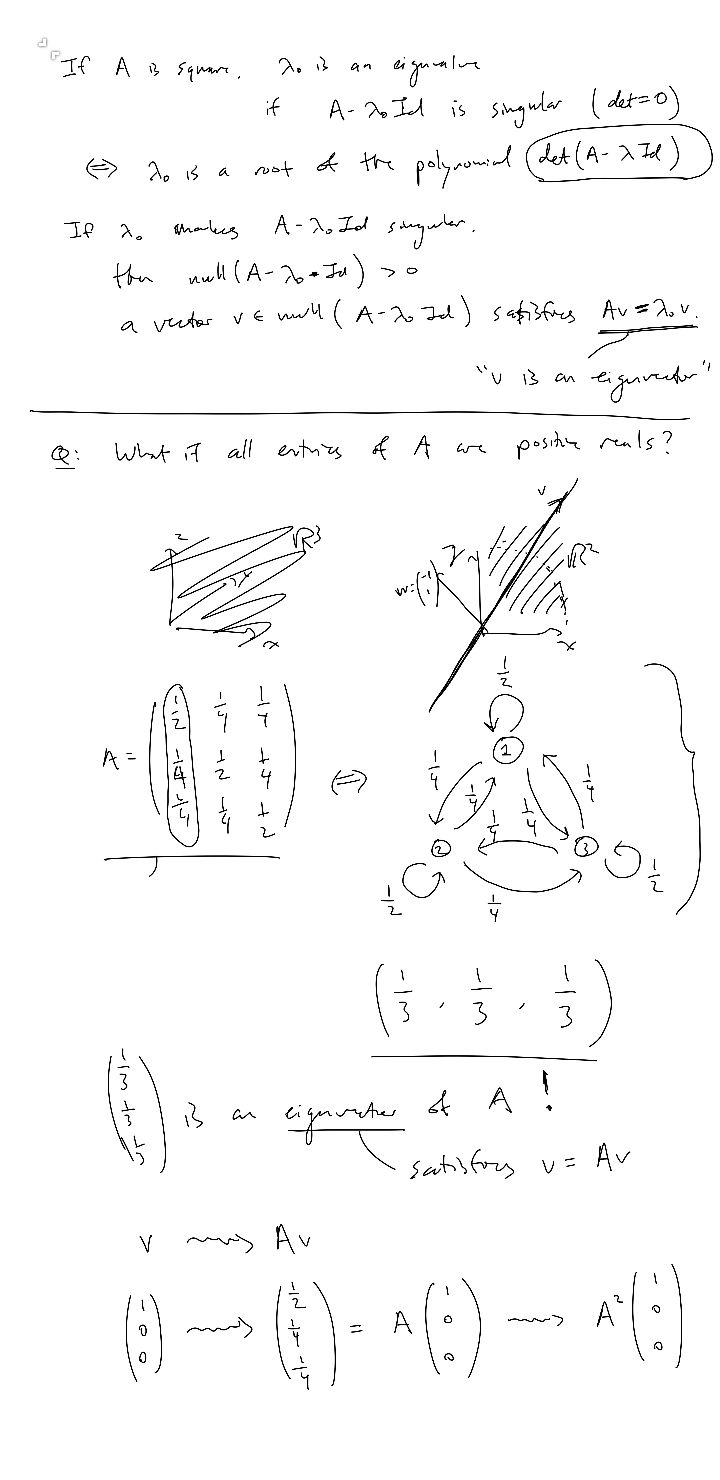 If A is square, λ₀ is an eigenvalue
if A - λ₀ Id is singular (det = 0)
⟺ λ₀ is a root of the polynomial det(A - λ Id)
If λ₀ makes A - λ₀ Id singular,
then null(A - λ₀ • Id) > 0
a vector v ∈ null(A - λ₀ Id) satisfies Av = λ₀ v.
"v is an eigenvector"
Q: What if all entries of A are positive reals?
z ℝ³ y x
v ℝ² y w = (-1 1) x
A = (1/2 1/4 1/4
1/4 1/2 1/4
1/4 1/4 1/2)
⟺
1/2
1
1/4 1/4 1/4 1/4
1/4
2 3
1/2 1/4 1/2
(1/3, 1/3, 1/3)
(1/3 1/3 1/3) is an eigenvector of A !
satisfies v = Av
v ⇝ Av
(1 0 0) ⇝ (1/2 1/4 1/4) = A (1 0 0) ⇝ A² (1 0 0)